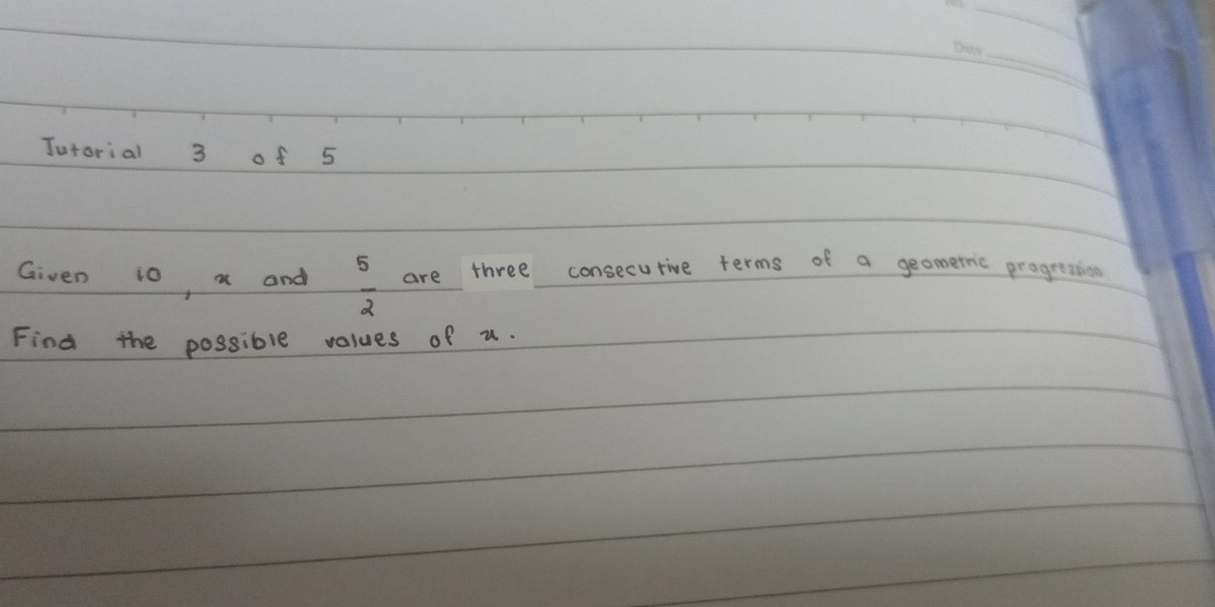 Date
Tutorial 3 of 5
Given 10, x and 5/2 are three consecutive terms of a geometric progression
Find the possible values of x.